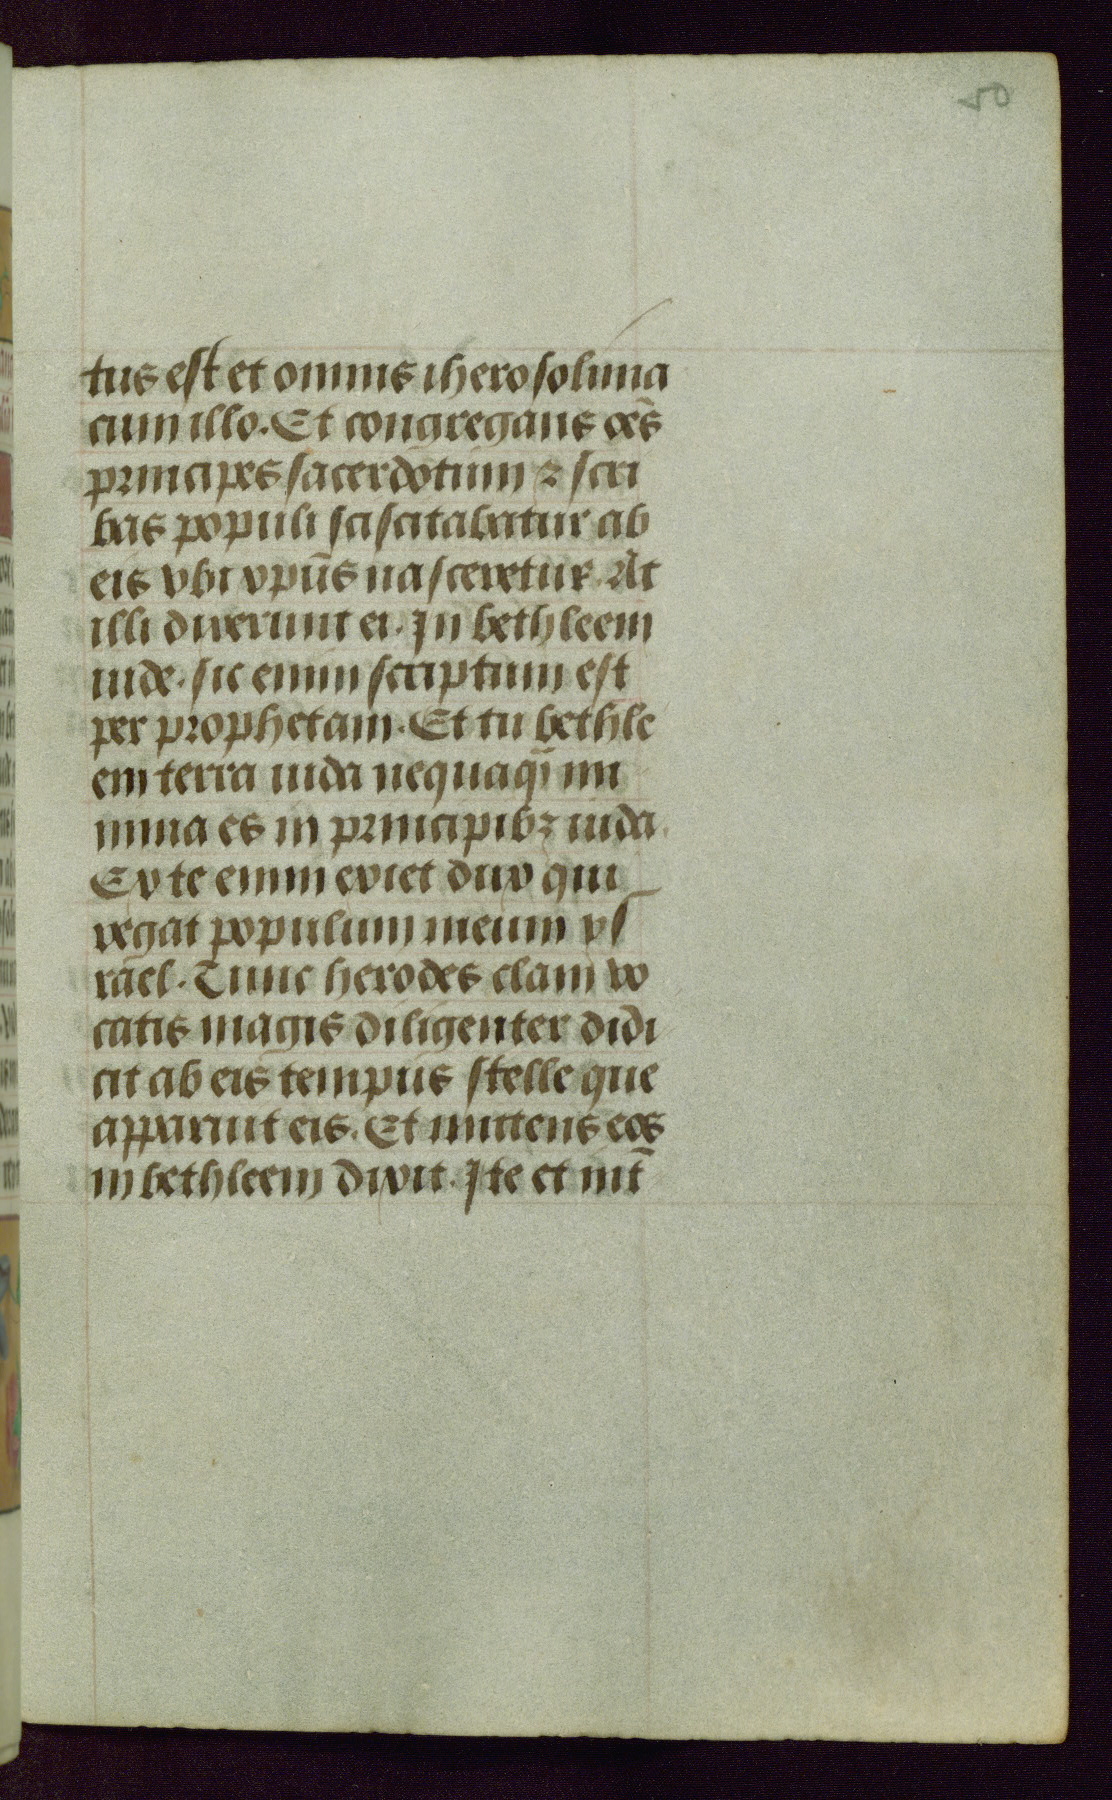 50
tus est et omnis iherosolima
cum illo. Et congregans oēs
principes sacerdotum ⁊ scri
bas populi sciscitabatur ab
eis vbi xpūs nasceretur. At
illi dixerunt ei. In bethleem
iude. sic enim scriptum est
per prophetam. Et tu bethle
em terra iuda nequaq̄ mi
nima es in principibꝫ iuda.
Ex te enim exiet dux qui
regat populum meum ys
rael. Tunc herodes clam vo
catis magis diligenter didi
cit ab eis tempus stelle que
apparuit eis. Et mittens eos
in bethleem dixit. Ite et int̄